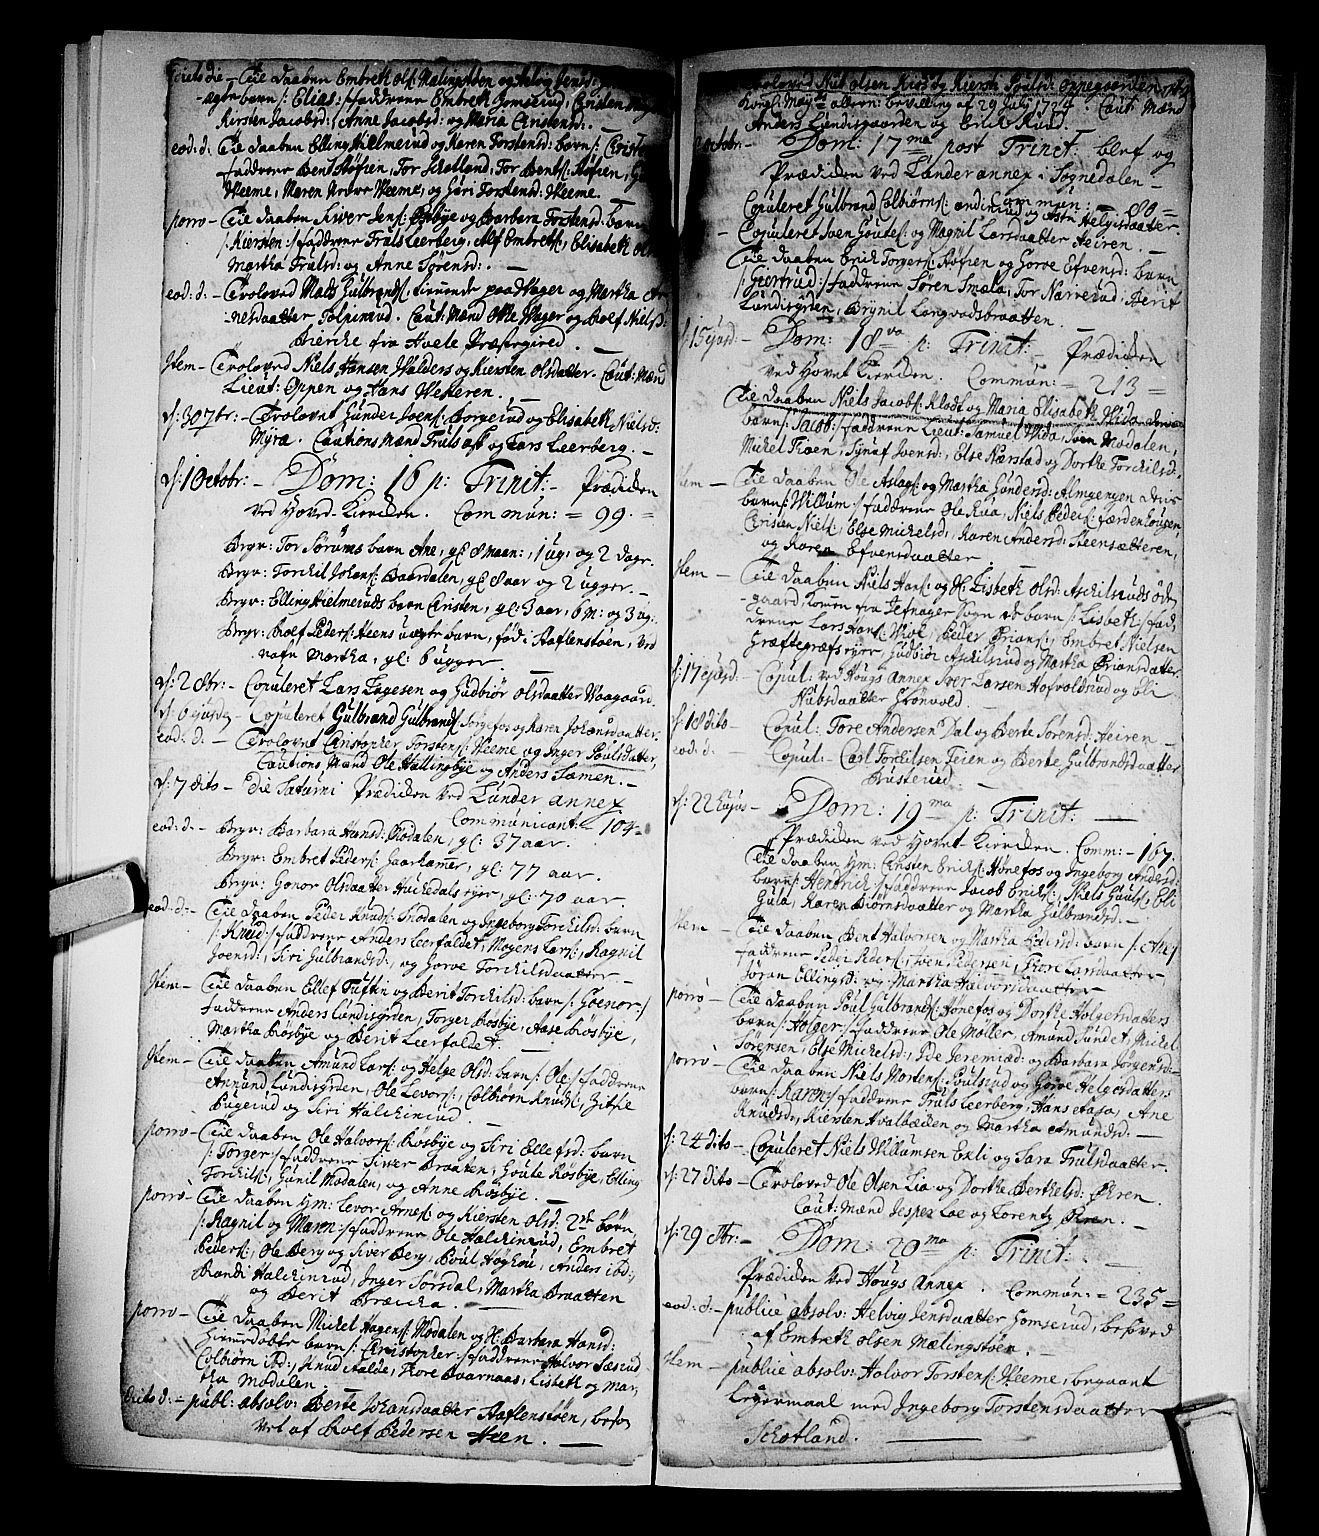 dito die - Till daaben Embreth Ols: Mælingstøen og Aslog Jensd:
-agen barn /: Elias :/ faddrene Embreth Gomserud, Christen
Kirsten Jacobsd: Anne Jacobsd: og Maria Christensd:. -
eod: d: - Till daaben Elling Hielmerud og Karen Torstensd: barn /: Christen
faddrene Bent Høfien, Tor Schotland, Tor Bents: Høfien,
Heeme, Maren Heeme, og Guri Torstensd: Heeme.
porro - Till daaben Siver Jens: Bøsbye og Barbara Torstensd: barn
/ Kiersten :/ faddrene Truls Leerberg, Alf Embrets:, Elisabeth
Martha Trulsd: og Anne Sørensd:. -
eod: d: - Troloved Mads Gulbrands: tienende paa Hager og Martha
-nesdaatter Tolpinrud. Caut: Mænd Ole Hager og Rolf Niels:
Bierche fra Hoele Præstegield.
Item - Troloved Niels Hansen Walders og Kiersten Olsdatter. Caut: Mænd
Lieut: Oppen og Hans Wekeren.
d: 30 7br: - Trolovet Gunder Svens: Borgerud og Elisabeth Nielsd:
Myra. Cautions Mænd Truls Ask og Lars Leerberg. -
d: 1 Octobr: - Dom: 16 p: Trinit: - Prædiken
ved Hovet Kircken. Commun: = 99. =
Bgrv: Tor Sørums barn Ane, gl: 8 Maan:, 1 ug: og 2 dage.
Bgrv: Torchil Johans: Baardalen, gl: 8 aar og 2 ugger.
Bgrv: Elling Hielmeruds barn Christen, gl: 3 aar, 6 M: og 3 ug:
Bgrv: Rolf Peders: Heens uægte barn, fød i Haflenstøen, ved
nafn Martha, gl: 6 ugger.
d: 2 8br: - Copuleret Lars Tagesen og Gudbiør Olsdaatter Waagaard.
d: 6 ejusdem - Copuleret Gulbrand Gulbrands: Sørgefos og Karen Johansdaatter.
eod: d: - Trolovet Christopher Torstens: Heeme og Inger Poulsdatter,
Cautions Mænd Ole Hallingbye og Anders Samen. -
d: 7 dito - Die Saturni Prædiken ved Lunder annex
Communicant: - 104 -
eod: d: - Bgrv: Barbara Hansd: Modalen, gl: 37 aar.
Bgrv: Embret Peders: Gaarhamer, gl: 77 aar.
Bgrv: Gonor Olsdaatter Huchedals ejer, gl: 70 aar.
eod: d: - Till daaben Peder Knuds: Modalen og Ingeborg Torchilsd: barn
/: Knud :/ faddrene Anders Leerfaldet, Mogens Lars:, Ragnil
Joensd:, Siri Gulbrandsd:, og Gorve Torchilsdaatter -
Item - Till daaben Ellef Tuftin og Berit Torchilsd: barn /: Goenor :/
faddrene Anders Lundisgrden, Torger Røsbye, Aase Røsbye,
Martha Røsbye og Berit Leerfaldet.
Item - Till daaben Amund Lars: og Helge Olsd: barn /: Ole :/ faddrene
Amund Lundisgrden, Ole Levors:, Colbiørn Knuds:, Zitsle
Bugerud og Siri Halchinrud.
porro - Till daaben Ole Halvors: Røsbye og Siri Ellefsd: barn
/: Torger :/ faddrene Siver Braaten, Goute Røsbye, Elling
Torchils:, Gunil Modalen, og Anne Røsbye.
porro - Till daaben Hm: Levor Arnes: og Kiersten Olsd: 2de børn
/: Ragnil og Maren :/ faddrene Ole Halchinrud, Embret
Peders:, Ole Berg og Siver Berg, Poul Høghou, Anders ibd:,
Randi Halchinrud, Inger Sørsdal, Martha Braatten
og Berit Bræcka. -
porro - Till daaben Michel Hagens: Modalen og H: Barbara Hansd:
barn /: Christopher :/ faddrene Halvor Sæsrud
Colbiørn ibd:, Knud Aalde, Thore Baarnaas, Lisbeth og Mar,
tha Modalen.
dito d: - publ: absolv: Berte Johansdaatter Haflenstøen, besov
vet af Rolf Pedersen Heen. -
Troloved Niels Olsen Kios og Kiersti Poulsd: Ennegaarden, efter
Kongl: Mayts allern: bevilling af 29 July 1724. Caut: Mænd
Anders Lundisgaarden og Erik Ruud.
Octobr: - Dom: 17ma post Trinit: blef og
Prædiken ved Lunder annex i Sognedalen -
Commun: = 80 =
Copuleret Gulbrand Colbiørns: Andinrud og Astri Helgisdaatter.
- Copuleret Sven Goutes: og Magnil Larsdaatter Heiren. -
Till daaben Erik Torgers: Høfien og Gorve Efvensd: barn
/: Giertrud :/ faddrene Søren Smala, Tor Narverud, Berit
Lundisgrden, Brynil Langvadsbraatten.
d: 15 ejusd: - Dom: 18va p: Trinit: - Prædiken
ved Hovet Kircken. Commun: = 213 =
Till daaben Niels Jacobs: Klodt og Maria Elisabeth Hvida deris
barn /: Jacob :/ faddrene Lieut: Samuel Hvida, Sven Modalen,
Michel Moen, Synøf Svensd:, Else Nærstad og Dorthe Torchilsd:
Item - Till daaben Ole Aslags: og Martha Gundersd: Almgengen deris
barn /: Willum :/ faddrene Ole Rua, Niels Peders: færdenhougen,
Christen Niels:, Else Michelsd:, Karen Andersd: Steensætteren,
og Karen Efvensdaatter
Item - Till daaben Niels Hans: og H: Lisbeth Olsd: Aschilsruds øde-
gaard, komen fra Jefnager Sogn cod barn /: Lisbeth :/ fad,
derne Lars Hans: Wiol, Peder Brians:, Embret Nielsen
Græftegræfs ejer, Gudbiør Aschilsrud og Martha Briansdatter
d: 17 ejusd - Copul: ved Hougs Annex Iver Larsen Hofvoldsrud og Eli
Nubsdaatter Grønvold. -
d: 18 dito - Copul: Tore Andersen Dal og Berte Sørensd: Heiren -
eod: d: - Copul: - Carl Torchilsen Feien og Berte Gulbrandsdaatter
Busterud.
d: 22 hujus - Dom: 19ma p: Trinit: -
Prædiken ved Hovet Kircken. Comm: - 167.
Till daaben Hm: Christen Eriks: Hønefos og Ingeborg Andersd:
barn /: Hendrich :/ faddrene Jacob Eriks:, Niels Gouls:, Eli
Gula, Karen Biørnsdaatter og Martha Gulbrandsd: -
Item - Till daaben Bent Halvorsen og Martha Pedersd: barn /: Ane :/
faddrene Peder Peders:, Sven Pedersen, Thore Larsdaatter -
Jøran Ellingsd: og Martha Halvorsdaatter
porro - Till daaben Poul Gulbrands: Hønefos og Dorthe Holgersdatters
barn /: Holger :/ faddrene Ole Møller, Amund Sundet, Michel
Sørensen, Else Michelsd:, Ide Jeremiæd: og Barbara Jørgensd:
porro - Till daaben Niels Mortens: Poulsrud og Gorve Helgesdatters
barn /: Karen :/ faddrene Truls Leerberg, Hans Aasa, Ane
Knudsd:, Kiersten Hvalbæcken og Martha Amundsd: -
d: 24 dito - Copuleret Niels Willumsen Exli og Sara Trulsdaatter.
d: 27 dito - Trolovet Ole Olsen Lia og Dorthe Berthelsd: Øren
Caut: Mænd Jesper Loe og Lorentz Øren. -
d: 29 Octbr: - Dom: 20ma p: Trinit: -
Prædiken ved Hougs Annex. Commun: = 235 =
eod: d: - publice absolv: Helvig Jensdaatter Gomserud, besoved
af Embreth Olsen Mælingstøen. -
Item - publice absolv: Halvor Torstens: Heeme, begaaet
Leyermaal med Ingeborg Torstensdaatter
Schotland. -